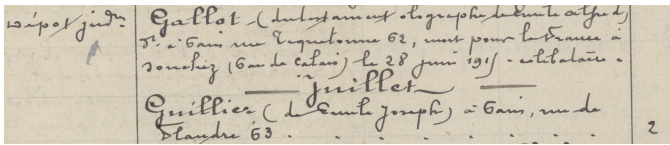 Dépôt judre Gallot (du testament olographe de Emile Alfred)
Dt à Paris rue Tiquetonne 62, mort pour la France à
Souchez (Pas de Calais) le 28 juin 1915 - célibataire -
Juillet
Guillier (de Emile Joseph) à Paris, rue de
Flandre 63 . . . . . . 2